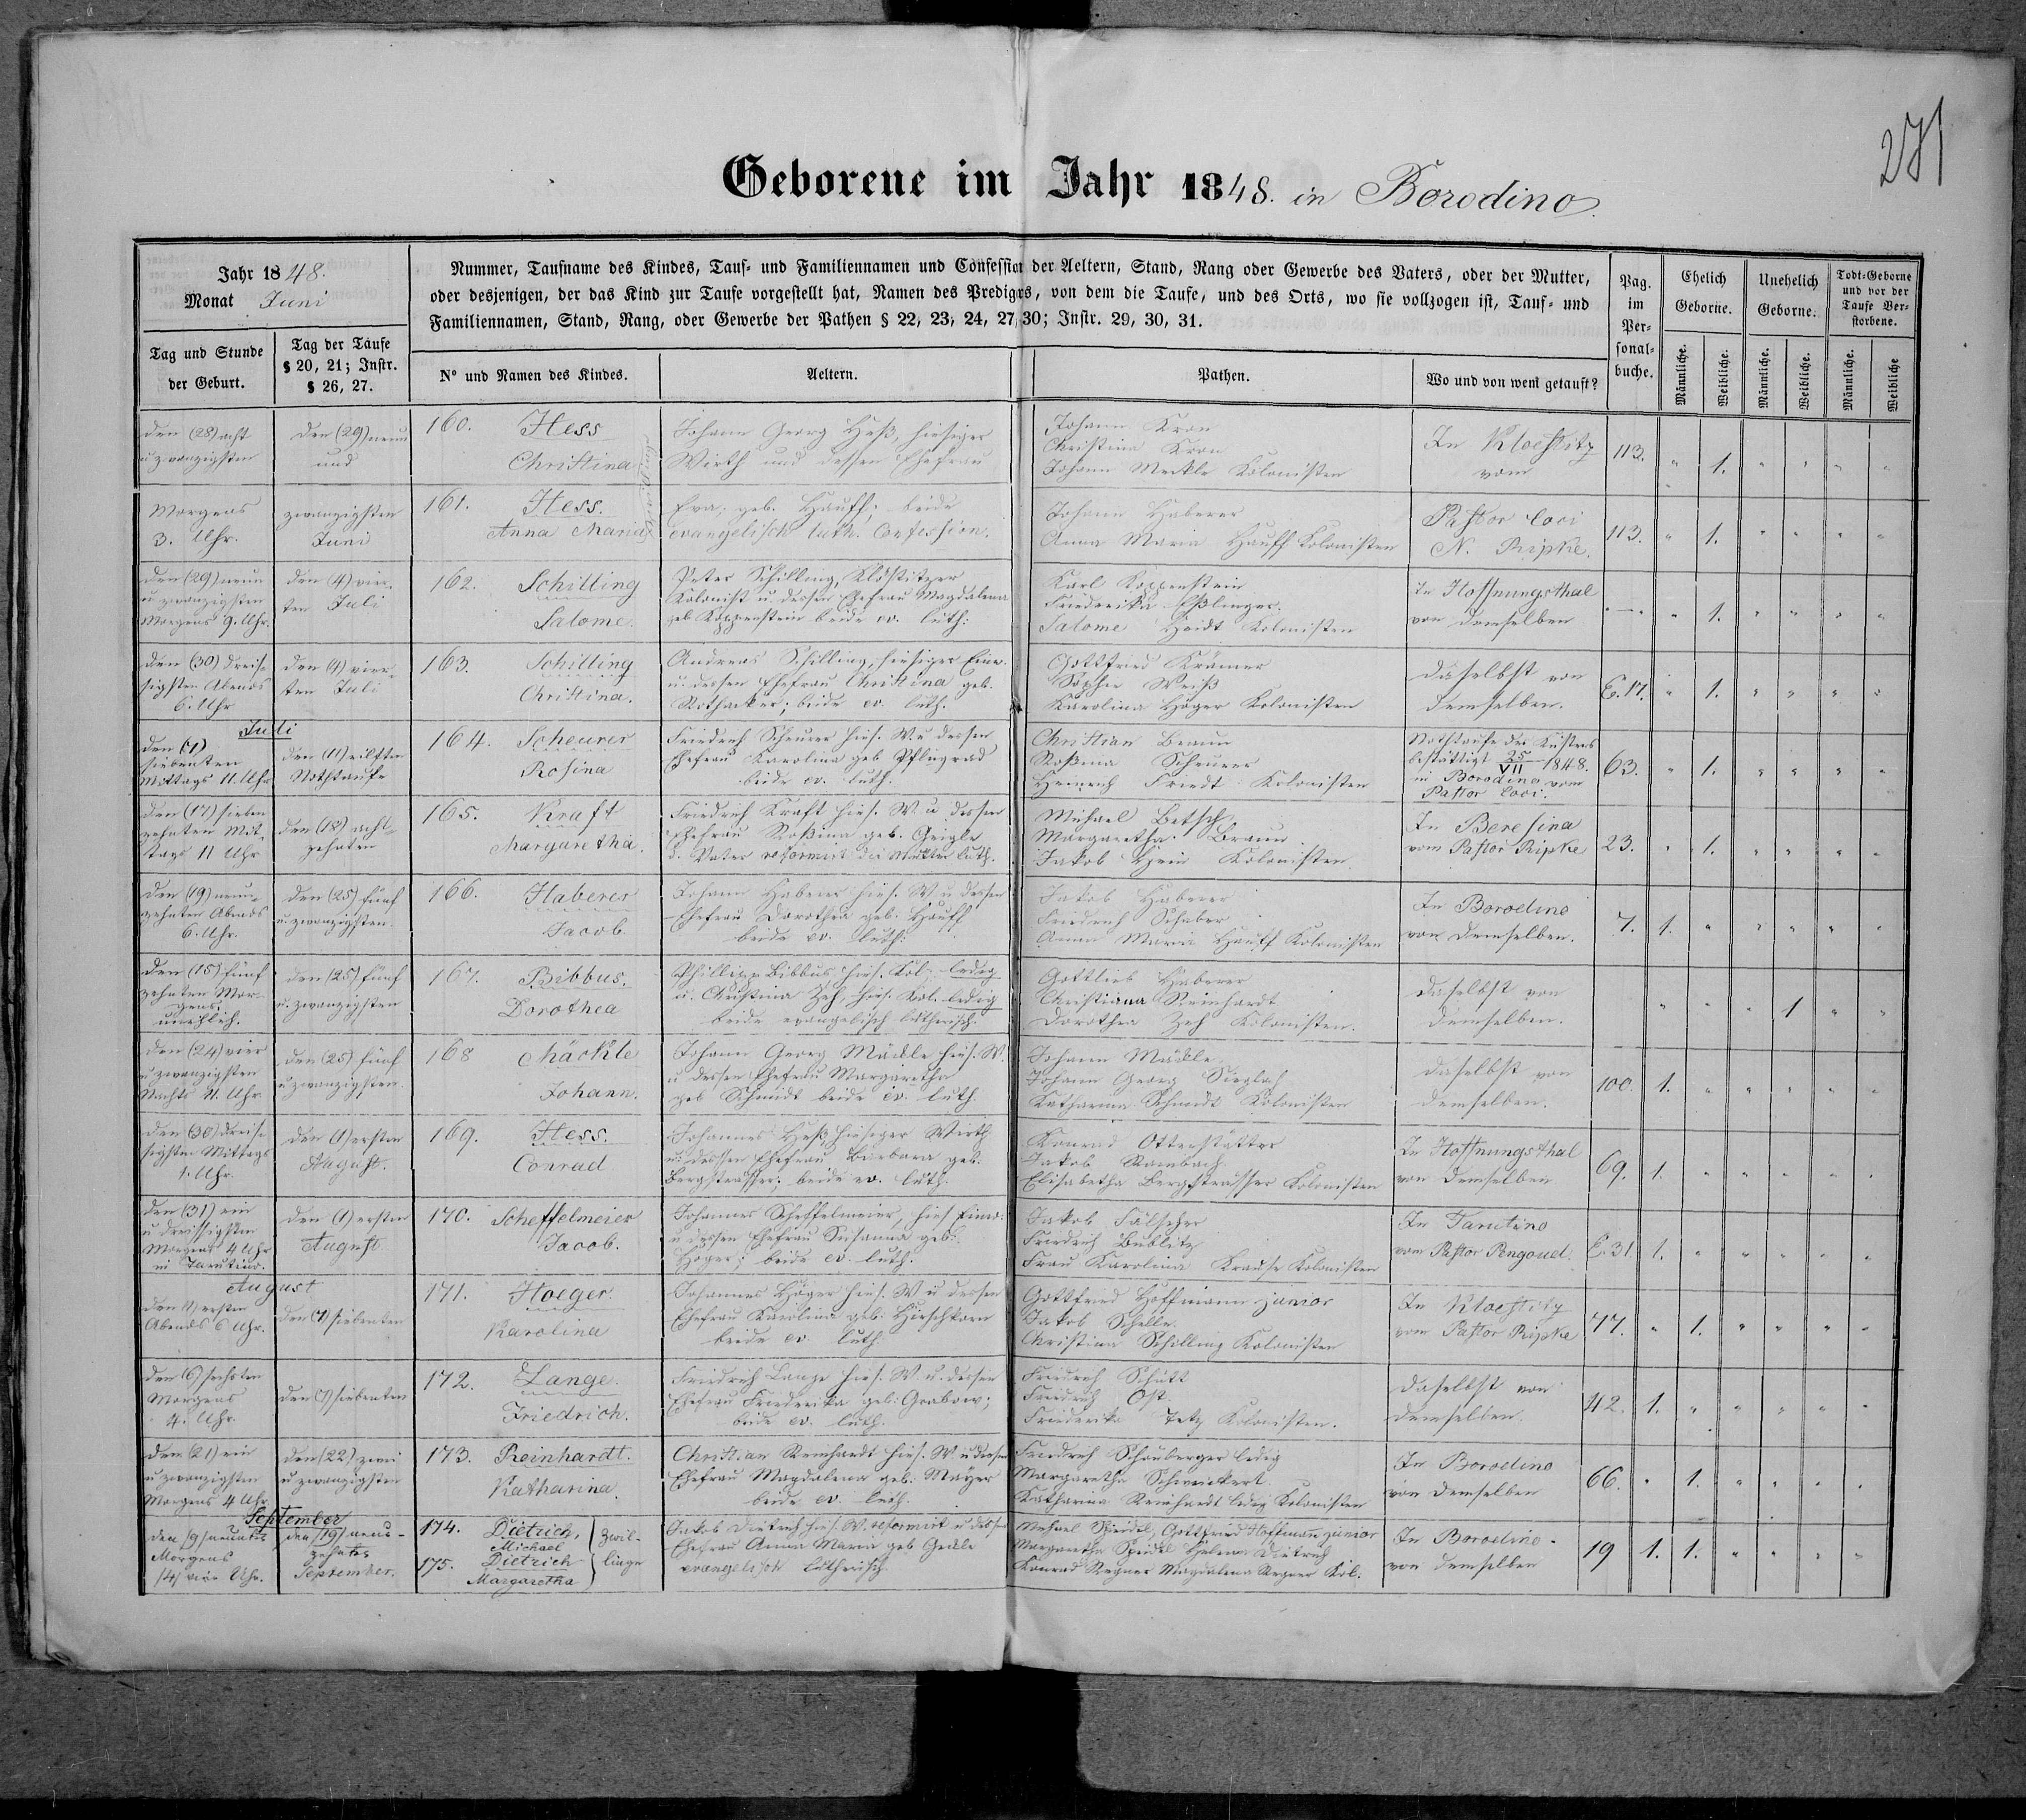 271
Geborene im Jahr 1848. in Borodino.
Jahr 1848.
Monat Juni
Nummer, Taufname des Kindes, Tauf- und Familiennamen und Confession der Aeltern, Stand, Rang oder Gewerbe des Vaters, oder der Mutter,
oder desjenigen, der das Kind zur Taufe vorgestellt hat, Namen des Predigers, von dem die Taufe, und des Orts, wo sie vollzogen ist, Tauf- und
Familiennamen, Stand, Rang, oder Gewerbe der Pathen § 22, 23, 24, 27, 30; Instr. 29, 30, 31.
Pag. im Personalbuche.
Ehelich Geborne.
Unehelich Geborne.
Todt-Geborne und vor der Taufe Verstorbene.
Tag und Stunde der Geburt.
Tag der Taufe § 20, 21; Instr. § 26, 27.
N° und Namen des Kindes.
Aeltern.
Pathen.
Wo und von wem getauft?
Männliche. Weibliche. Männliche. Weibliche. Männliche. Weibliche
den (28) acht
u zwanzigsten
den (29) neun
und
160. Hess
Christina
Johann Georg Heß, hiesiger
Wirth und dessen Ehefrau
Johann Kron
Christina Kron
Johann Merkle Kolonisten
In Kloestitz
vom
113. " 1. " " " "
Morgens
3. Uhr.
zwanzigsten
Juni
161. Hess.
Anna Maria
Eva, geb. Hauff: beide
evangelisch luth. Confession.
Johann Haberer
Anna Maria Hauff Kolonisten
Pastor loci
N. Pripke.
113. " 1. " " " "
den (29) neun
u zwanzigsten
Morgens 9. Uhr.
den (4) vier-
ten Juli
162. Schilling
Salome.
Peter Schilling, Klöstitzer
Kolonist u. dessen Ehefrau Magdalena
geb. Koppenstein beide ev. luth:
Karl Koppenstein
Friederika Eßlinger.
Salome Heidt Kolonisten
In Hoffnungsthal
von demselben
— " 1. " " " "
den (30) dreis-
sigsten Abends
6. Uhr
den (4) vier-
ten Juli
163. Schilling
Christina.
Andreas Schilling, hiesiger Einw.
u. dessen Ehefrau Christina geb.
Rothacker; beide ev. luth.
Gottfried Krämer
Sophie Weiß
Karolina Höger Kolonisten
daselbst von
demselben.
E.17. " 1. " " " "
Juli
den (7)
siebenten
Mittags 11. Uhr
den (11) eilften
Nothtaufe
164. Scheurer
Rosina
Friedrich Scheurer hies. W. u dessen
Ehefrau Karolina geb. Pflugrad
beide ev. luth.
Christian Braun
Rosina Scheurer
Heinrich Friedt Kolonisten
Nothtaufe des Küsters
bestättigt 25/VII 1848.
in Borodino vom
Pastor loci.
63. " 1. " " " "
den (17) sieben
zehnten Mit-
tags 11 Uhr
den (18) acht-
zehnten
165. Kraft
Margaretha.
Friedrich Kraft hies. W. u dessen
Ehefrau Rosina geb. Geigle
d. Vater reformirt die Mutter luth.
Michael Betsch
Margaretha Braun
Jakob Hein Kolonisten
In Beresina
vom Pastor Pripke
23. " 1. " " " "
den (19) neun-
zehnten Abends
6. Uhr.
den (25) fünf
u. zwanzigsten.
166. Haberer
Jacob
Johann Haberer hies. W. u dessen
Ehefrau Dorothea geb. Hauff
beide ev. luth:
Jakob Haberer
Friedrich Schaber
Anna Maria Hauff Kolonisten
In Borodino
von demselben.
7. 1. " " " " "
den (15) fünf
zehnten Mor-
gens.
unehlich.
den (25) fünf
u. zwanzigsten
167. Bibbus.
Dorothea
Phillipp Bibbus, hies. Kol. ledig
u. Christina Zeh, hies. Kol. ledig
beide evangelisch lutherisch.
Gottlieb Haberer
Christiana Reinhardt
Dorothea Zeh Kolonisten.
daselbst von
demselben.
" " " 1 " "
den (24) vier
u zwanzigsten
Nachts 11. Uhr.
den (25) fünf
u zwanzigsten.
168 Mäckle
Johann.
Johann Georg Mäckle hies. W.
u dessen Ehefrau Margaretha
geb. Schmidt beide ev. luth.
Johann Mäckle
Johann Georg Sieglah
Katharina Schmidt Kolonisten
daselbst von
demselben.
100. 1. " " " " "
den (30) dreis-
sigsten Mittags
1. Uhr.
den (1) ersten
August.
169. Hess.
Conrad
Johannes Heß, hiesiger Wirth
u. dessen Ehefrau Barbara geb.
Bergstrasser; beide ev. luth.
Konrad Ottenstätter
Jakob Rombach
Elisabetha Bergstrasser Kolonisten
In Hoffnungsthal
von demselben
69. 1. " " " " "
den (31) ein
u dreissigsten
Morgens 4 Uhr
in Tarutino.
den (1) ersten
August
170. Scheffelmeier
Jacob.
Johannes Scheffelmeier, hies. Einw.
u dessen Ehefrau Susanna geb.
Höger; beide ev. luth.
Jakob Fälscher
Friedrich Bublitz
Frau Karolina Krause Kolonisten
In Tarutino
vom Pastor Pengoud.
E.31. 1. " " " " "
August
den (1) ersten
Abends 6 Uhr.
den (7) siebenten
171. Hoeger.
Karolina
Johannes Höger hies. W u dessen
Ehefrau Karolina geb. Hirschkorn
beide ev. luth.
Gottfried Hoffmann junior
Jakob Schelle.
Christina Schilling Kolonisten
In Kloestitz
vom Pastor Pripke
77. " 1. " " " "
den (6) sechsten
Morgens
4. Uhr.
den (7) siebenten
172. Lange.
Friedrich.
Friedrich Lange hies. W. u. dessen
Ehefrau Friederika geb. Grabow;
beide ev. luth.
Friedrich Schütt
Friedrich Ost
Friederika Tetz Kolonisten.
daselbst von
demselben.
42. 1. " " " " "
den (21) ein
u zwanzigsten
Morgens 4 Uhr
den (22) zwei
u zwanzigsten
173. Reinhardt.
Katharina.
Christian Reinhardt hies. W. u dessen
Ehefrau Magdalena geb. Mayer
beide ev. luth.
Friedrich Schauberger ledig
Margaretha Schweickert
Katharina Reinhardt ledig Kolonisten
In Borodino
von demselben
66. " 1. " " " "
September
den (9) neunten
Morgens
(4) vier Uhr.
den (19) neun-
zehnten
September.
174. Dietrich,
Michael
175. Dietrich
Margaretha
Zwil-
linge
Jakob Dietrich hies. W. reformirt u dessen
Ehefrau Anna Maria geb. Geckle
evangelisch lutherisch.
Michael Speidel, Gottfried Hoffmann junior
Margaretha Speidel Helena Dietrich
Konrad Wegner Magdalena Wegner Kol.
In Borodino
von demselben
19 1. 1. " " " "